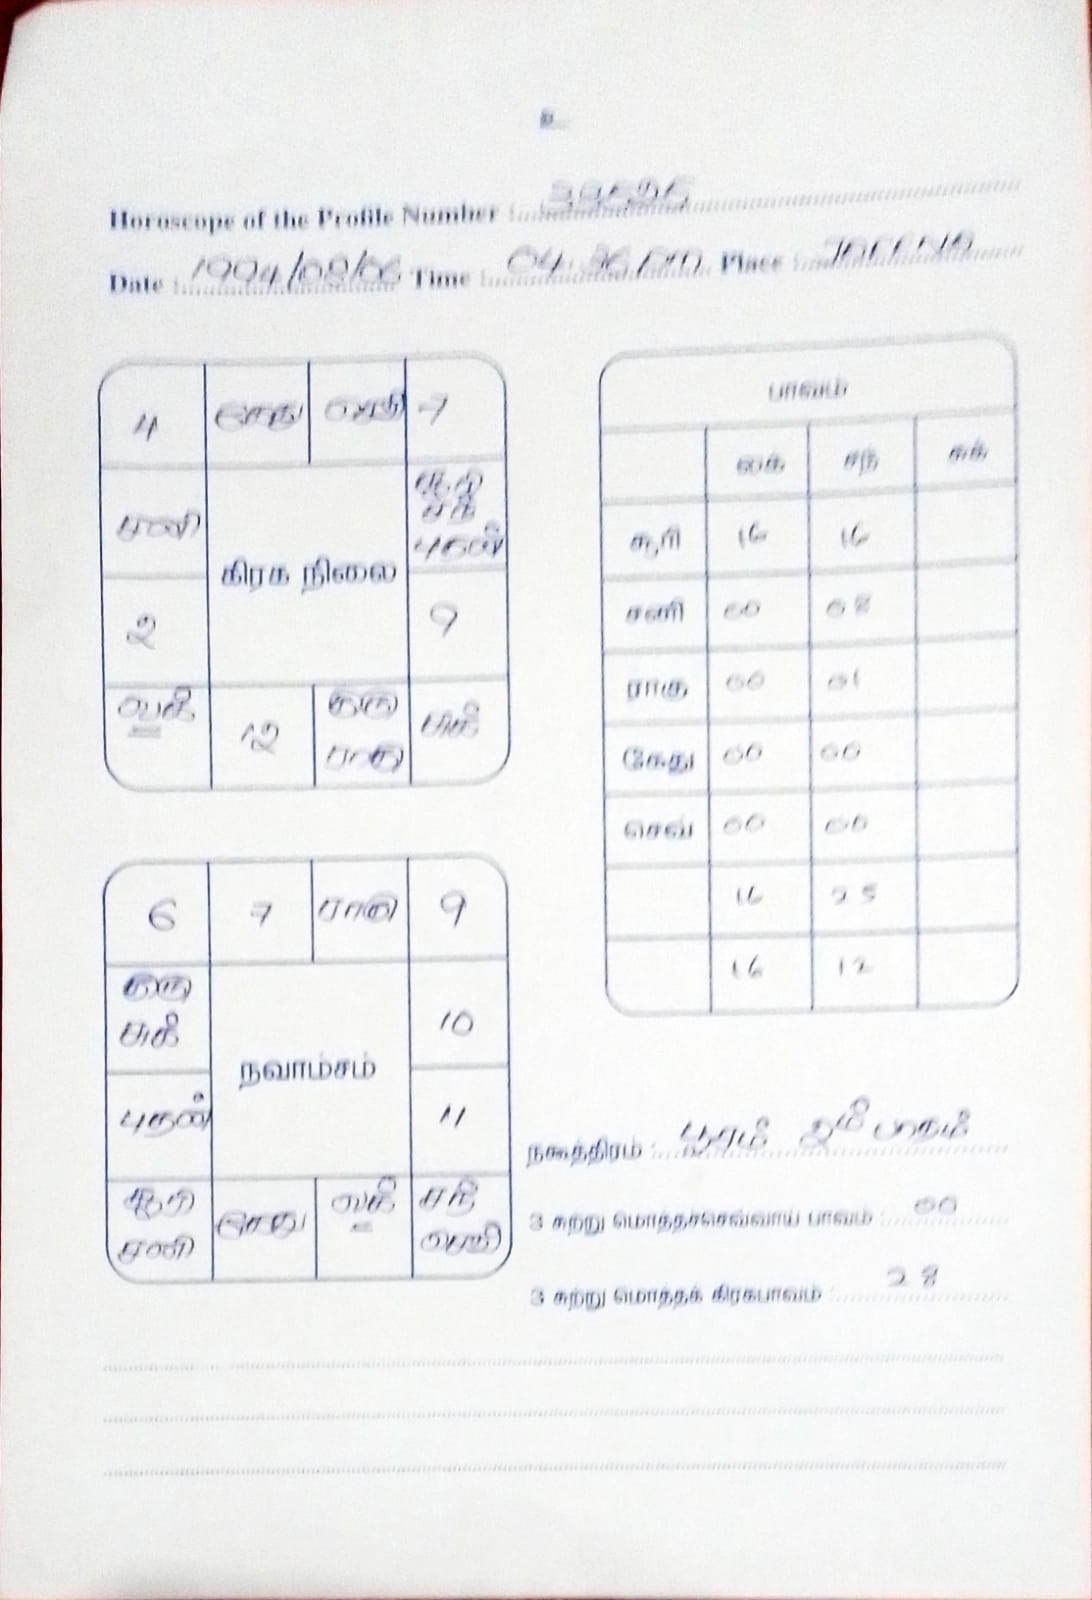 உ
Horoscope of the Profile Number :
Date : 1994/08/06 Time : 04:36 PM Place : JAFFNA
4 கேது செவ் 7
சனி
சூரி
சந்
புதன்
கிரக நிலை
2 9
லக் 12 குரு சுக்
ராகு
பாவம்
லக் சந் சுக்
சூரி 16 16
சனி 00 08
ராகு 00 01
கேது 00 00
செவ் 00 00
16 25
16 12
6 7 ராகு 9
குரு
சுக்
10
நவாம்சம்
புதன் 11
சூரி கேது லக் சந்
சனி செவ்
நக்ஷத்திரம் : பூசம் 2ம் பாதம்
3 சுற்று மொத்தச்செவ்வாய் பாவம் : 00
3 சுற்று மொத்தக் கிரகபாவம் : 28